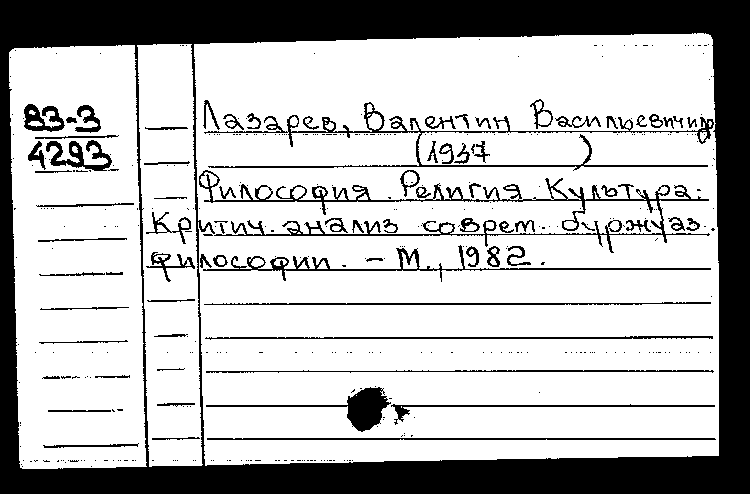 83-3
4293
Лазарев, Валентин Васильевич и др.
(1937 )
Философия. Религия. Культура:
Критич. анализ соврем. буржуаз.
философии. - М., 1982.